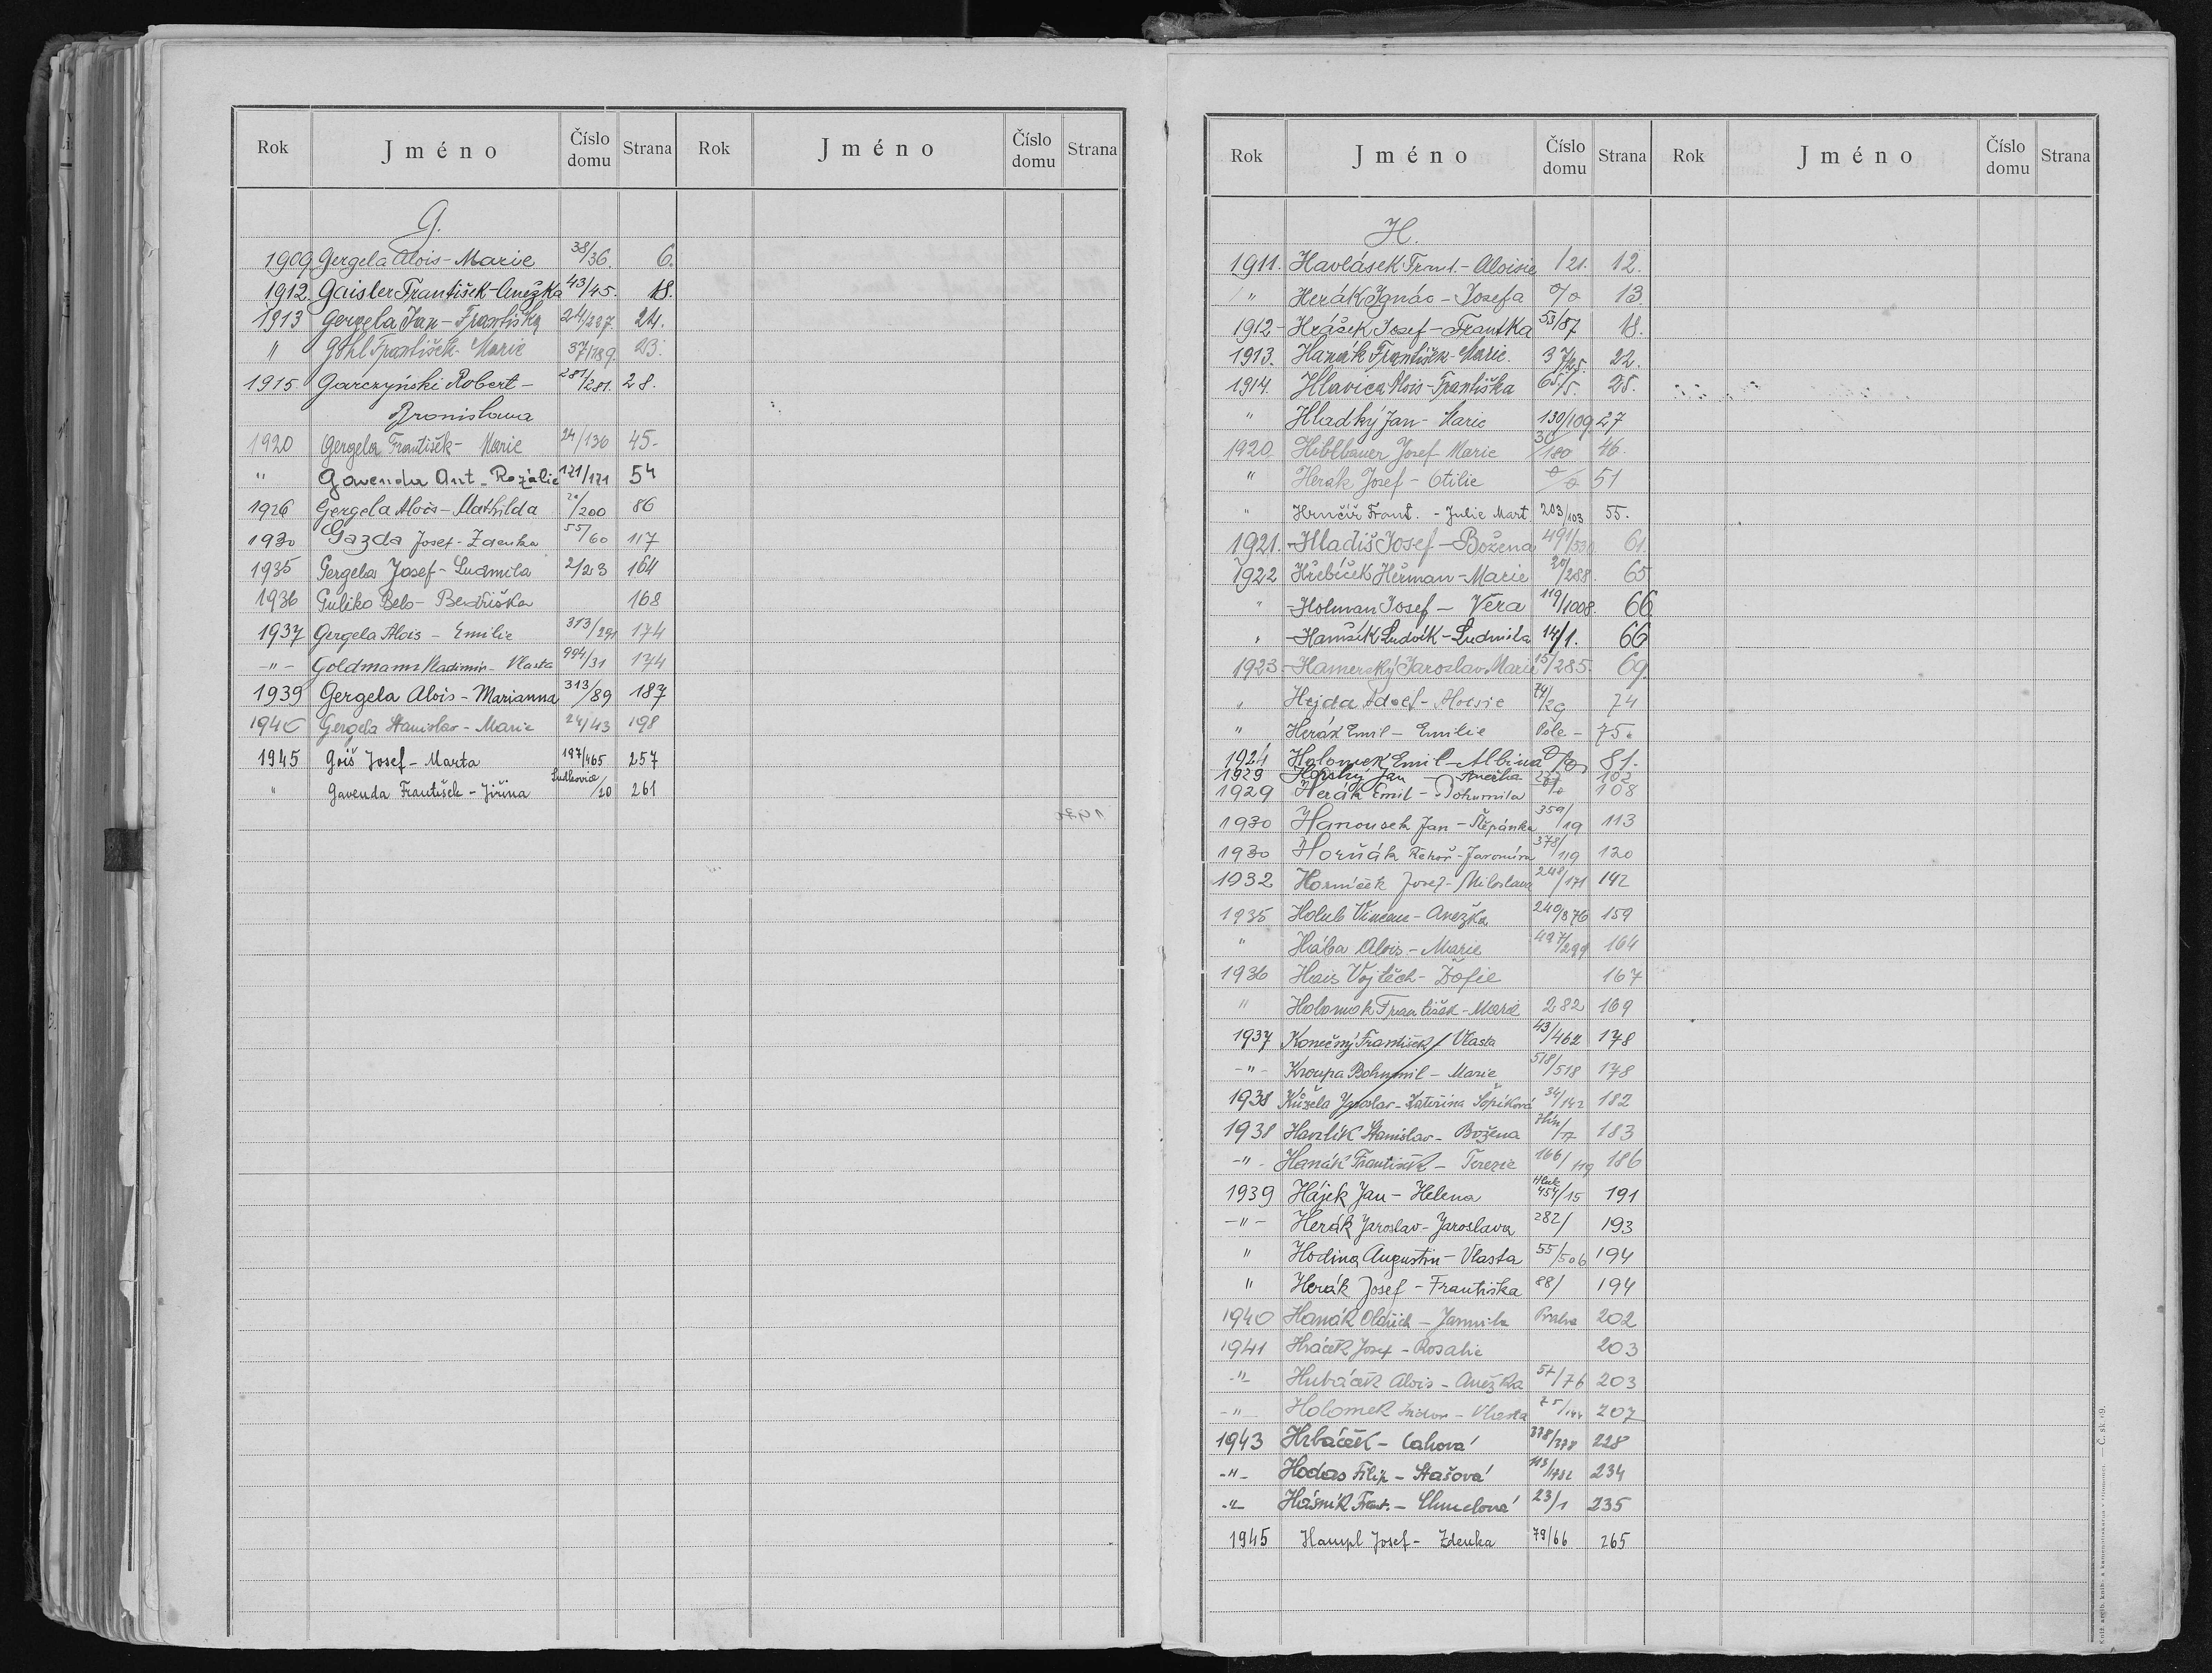 Rok Jméno Číslo domu Strana Rok Jméno Číslo domu Strana
G.
1909 Gergela Alois - Marie 38/36. 6.
1912. Gaisler František - Anežka 43/45. 18.
1913 Gergela Jan - Františka 24/227. 24.
" Göhl František - Marie 37/189. 23.
1915. Garczyński Robert - 281/281. 28.
Bronislawa
1920 Gergela František - Marie 24/136 45.
" Gavenda Ant. - Rozálie 121/121 54
1926 Gergela Alois - Mathilda /200 86
1930 Gazda Josef - Zdenka 55/60 117
1935 Gergela Josef - Ludmila 2/23 164
1936 Guliko Belo - Bedřiška 168
1937 Gergela Alois - Emilie 313/291 174
-"- Goldmann Vladimír - Vlasta 994/31 174
1939 Gergela Alois - Marianna 313/89 187
1940 Gergela Stanislav - Marie 24/43 198
1945 Goiš Josef - Marta 197/465 257
" Gavenda František - Jiřina Ludkovice/20 261
Rok Jméno Číslo domu Strana Rok Jméno Číslo domu Strana
H.
1911. Havlásek Frant. - Aloisie 121. 12.
" Herák Ignác - Josefa 0/0 13.
1912 - Hrášek Josef - Frantka 53/87 18.
1913. Hanák František - Marie. 37/25. 22.
1914. Hlavica Alois - Františka 65/5. 25.
" Hladký Jan - Marie 130/109 27
1920 Hiblbauer Josef - Marie 30/180 46.
" Herák Josef - Otilie 0/0 51
" Hrnčíř Frant. - Julie Mart. 203/103 55.
1921. - Hladiš Josef - Božena 491/530 61.
1922 Hřebíček Heřman - Marie 20/288. 65
" - Holman Josef - Věra 119/1008. 66
" - Hamšík Ludvík - Ludmila 14/1. 66
1923. - Hamerský Jaroslav - Marie 15/285. 69.
" Hejda Adolf - Aloisie 74/29 74
" Herák Emil - Emilie Pole - 75.
1924 Holomek Emil - Albina 0/0 81.
1929 Horský Jan - Anežka 277 102
1929 Herák Emil - Bohumila 0/0 108
1930 Hanousek Jan - Štěpánka 359/19 113
1930 Horňák Řehoř - Jaromíra 378/119 120
1932 Horníček Josef - Miloslava 248/171 142
1935 Holub Vincenc - Anežka 240/876 159
" Hába Alois - Marie 497/299 164
1936 Hais Vojtěch - Žofie 167
" Holomek František - Marie 282 169
1937 Konečný František / Vlasta 43/462 178
-"- Kroupa Bohumil - Marie 518/518 178
1938 Kůžela Jaroslav - Kateřina Šopíková 34/142 182
1938 Havrlík Stanislav - Božena Zlín/17 183
-"- Hanák František - Terezie 166/119 186
1939 Hájek Jan - Helena Hluk 454/15 191
-"- Herák Jaroslav - Jaroslava 282/ 193
" Hodina Augustin - Vlasta 55/506 194
" Herák Josef - Františka 88/ 194
1940 Hanák Oldřich - Jarmila Praha 202
1941 Hráček Josef - Rosalie 203
-"- Hubáček Alois - Anežka 57/76 203
-"- Holomek - Vlasta 75/144 207
1943 Hrbáček - Cahová 378/378 228
-"- Hodas Filip - Stašová 113/1782 234
-"- Hásník Frant. - Chmelová 23/1 235
1945 Hampl Josef - Zdenka 79/66 265